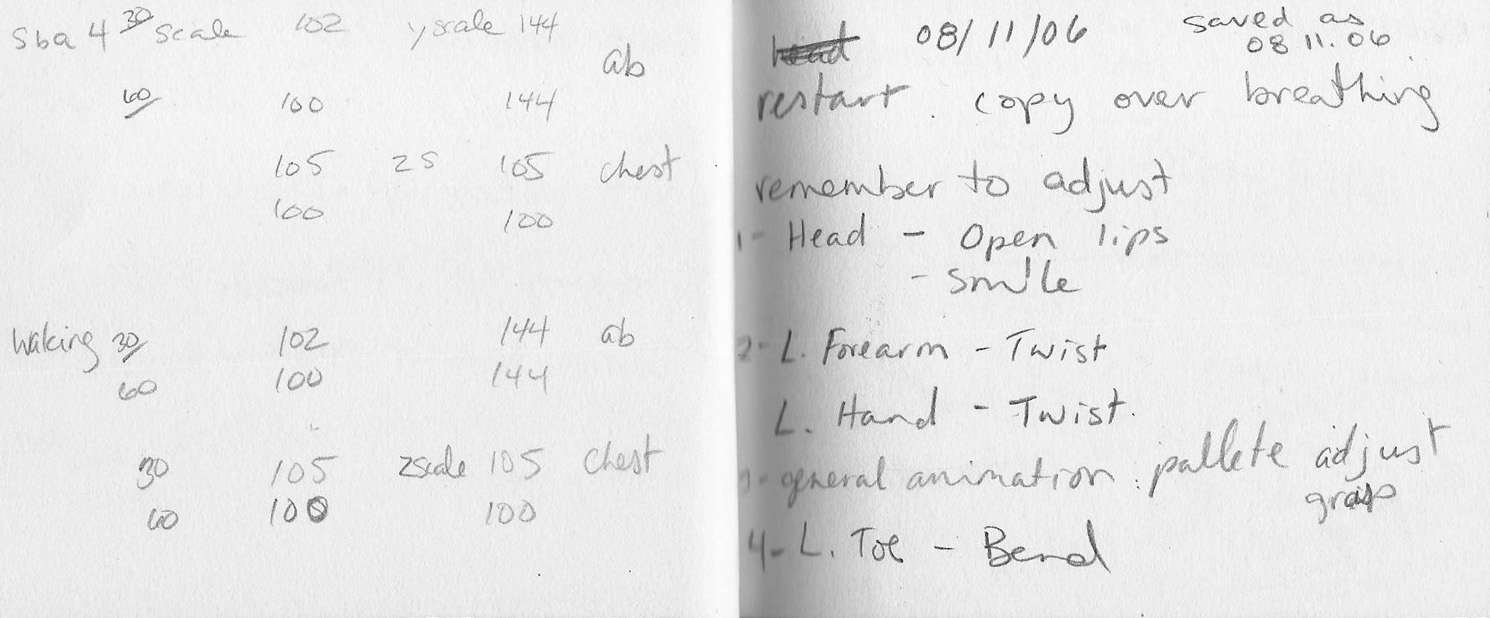 sba 4 30 scale 102 y scale 144
ab
60 100 144
105 ZS 105 chest
100 100
waking 30 102 144 ab
60 100 144
30 105 Zscale 105 chest
60 100 100
head 08/11/06 saved as
08 11.06
restart. copy over breathing
remember to adjust
1- Head - Open lips
- Smile
2- L. Forearm - Twist
L. Hand - Twist.
3- general animation : pallete adjust
grasp
4- L. Toe - Bend